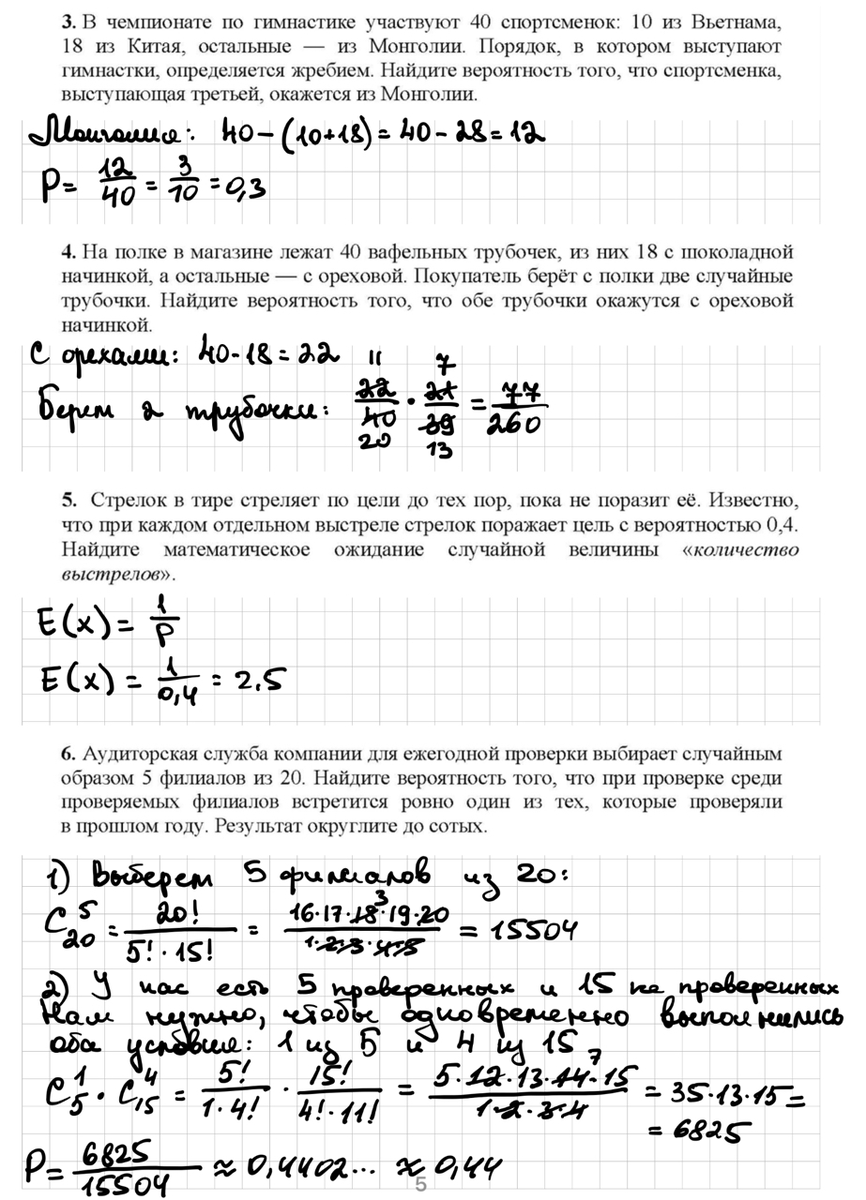 3. В чемпионате по гимнастике участвуют 40 спортсменок: 10 из Вьетнама,
18 из Китая, остальные — из Монголии. Порядок, в котором выступают
гимнастки, определяется жребием. Найдите вероятность того, что спортсменка,
выступающая третьей, окажется из Монголии.
Монголия: 40-(10+18)=40-28=12
P= 12/40 = 3/10 =0,3
4. На полке в магазине лежат 40 вафельных трубочек, из них 18 с шоколадной
начинкой, а остальные — с ореховой. Покупатель берёт с полки две случайные
трубочки. Найдите вероятность того, что обе трубочки окажутся с ореховой
начинкой.
С орехами: 40-18=22
11 7
Берем 2 трубочки: 22/40 · 21/39 = 77/260
20 13
5. Стрелок в тире стреляет по цели до тех пор, пока не поразит её. Известно,
что при каждом отдельном выстреле стрелок поражает цель с вероятностью 0,4.
Найдите математическое ожидание случайной величины «количество
выстрелов».
E(x) = 1/P
E(x) = 1/0,4 = 2,5
6. Аудиторская служба компании для ежегодной проверки выбирает случайным
образом 5 филиалов из 20. Найдите вероятность того, что при проверке среди
проверяемых филиалов встретится ровно один из тех, которые проверяли
в прошлом году. Результат округлите до сотых.
1) Выберем 5 филиалов из 20:
3
C₂₀⁵ = 20!/(5!·15!) = (16·17·18·19·20)/(1·2·3·4·5) = 15504
2) У нас есть 5 проверенных и 15 не проверенных
Нам нужно, чтобы одновременно выполнились
оба условия: 1 из 5 и 4 из 15
7
C₅¹ · C₁₅⁴ = 5!/(1·4!) · 15!/(4!·11!) = (5·12·13·14·15)/(1·2·3·4) = 35·13·15=
= 6825
P= 6825/15504 ≈ 0,4402... ≈ 0,44
5